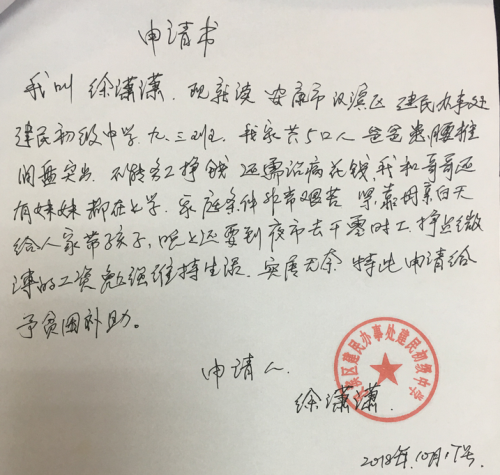 申请书
我叫 徐潇潇. 现就读 安康市汉滨区 建民办事处
建民初级中学 九.三班. 我家共5口人 爸爸患腰椎
间盘突出. 不能务工挣钱 还需治病花钱, 我和哥哥还
有妹妹都在上学. 家庭条件非常艰苦 紧靠母亲白天
给人家带孩子, 晚上还要到夜市去干零时工 挣点微
薄的工资 勉强维持生活. 实属无奈 特此申请给
予贫困补助。
申请人
徐潇潇.
汉滨区建民办事处建民初级中学
2018年10月17号.